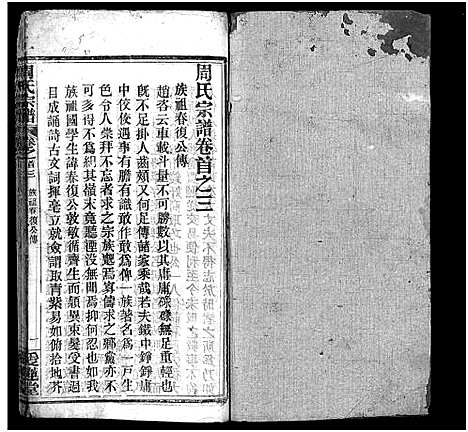 周氏宗譜卷首之三
族祖春復公傳
趙咨云車載斗量不可勝數以其庸庸碌碌無足重輕也
旣不足掛人齒頰又何足傳諸家乘哉若夫鐵中錚錚庸
中佼佼遇有膽有識敢作敢爲俾一族著名爲一戶生
色令人崇拜不忘者求之宗族邈焉寡儔求之鄉黨亦不
可多得不爲紀其嶺末竟聽湮没無聞焉抑何忍也如我
族祖國學生諱春復公敦敏循齊生而頴異束髮受書過
目成誦詩古文詞揮毫立就僉謂取青紫易如俯拾地芥
周氏宗譜
卷之首三
族祖春復公傳
一
愛蓮堂